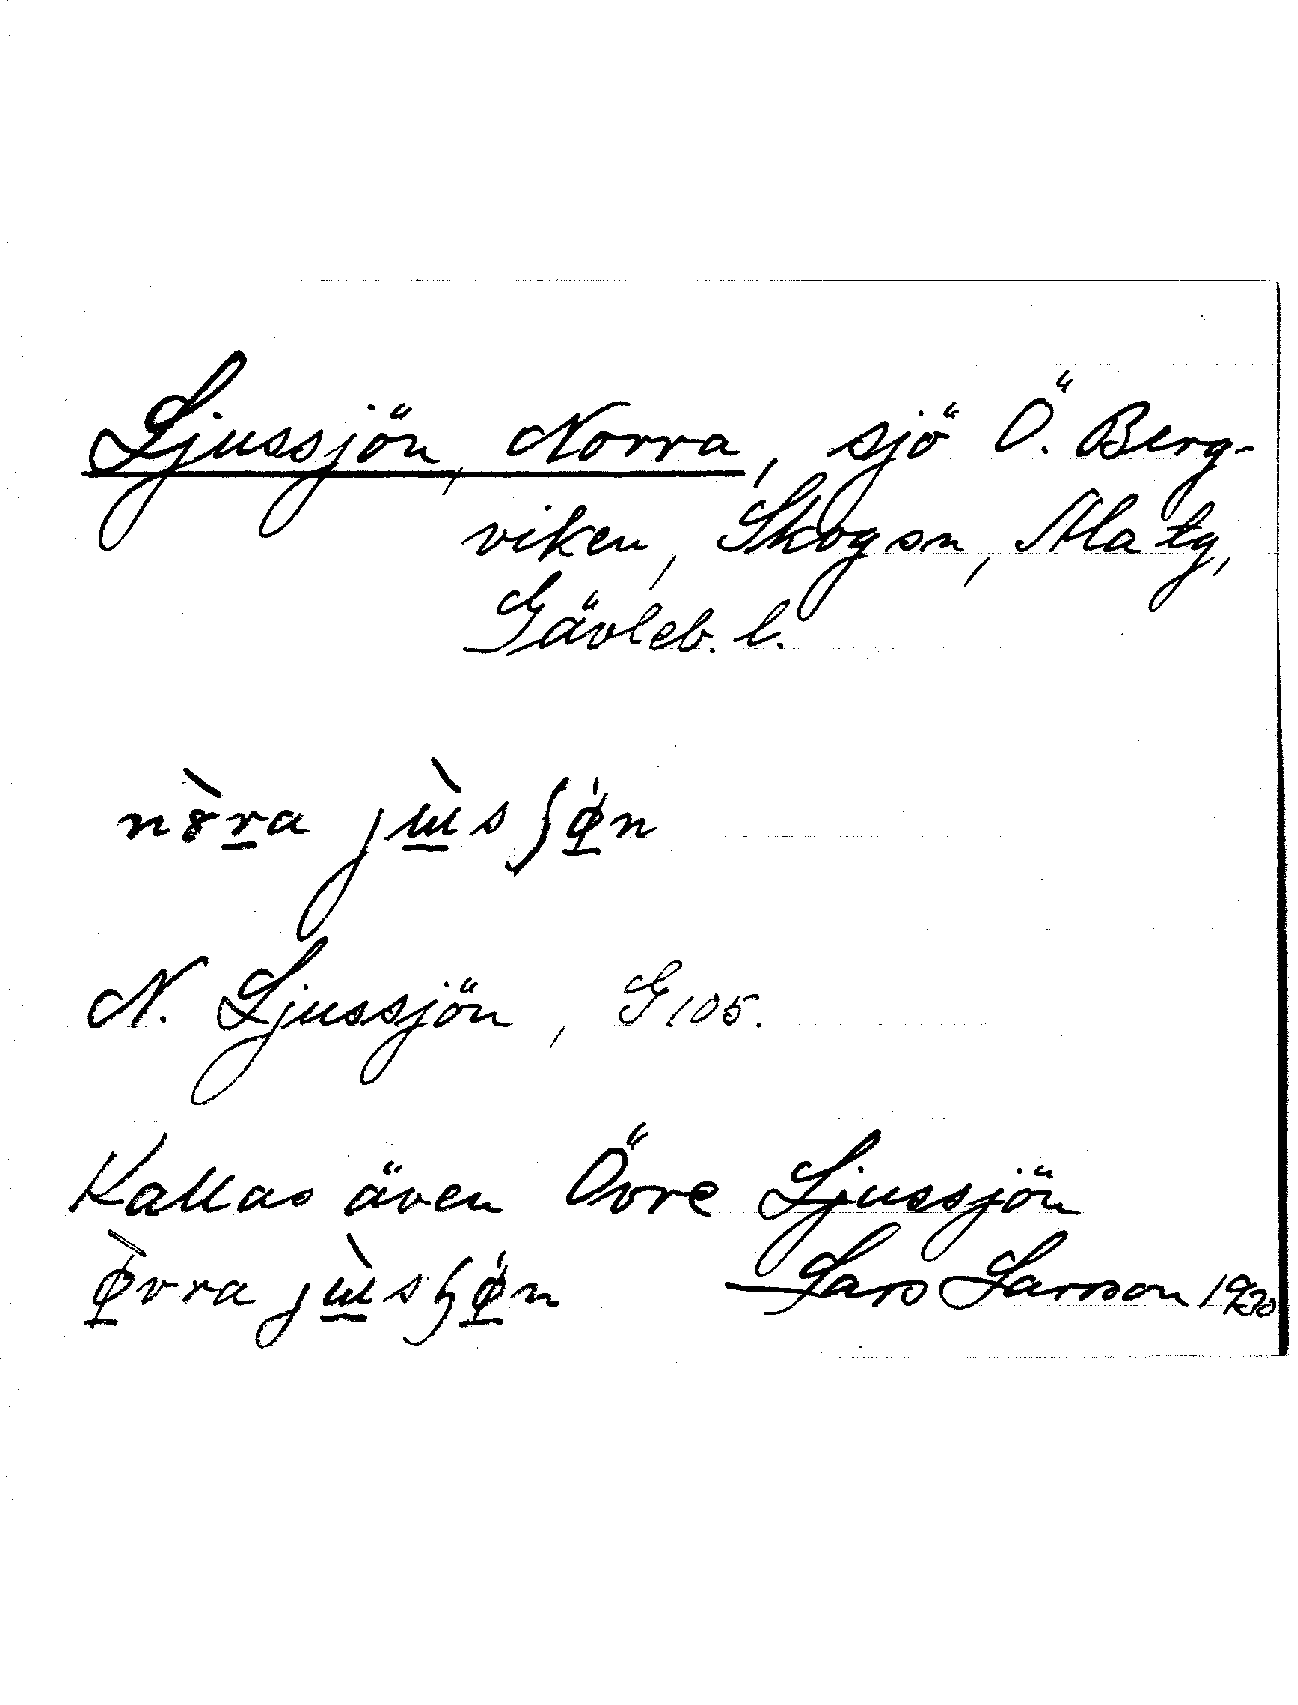 Ljussjön, Norra, sjö Ö. Berg-
viken, Skogsn, Ala tg,
Gävleb. l.
nòra jɯ̀sʃø̀n
N. Ljussjön, G 105.
Kallas även Övre Ljussjön
ø̀vra jɯ̀sʃøn
Lars Larsson 1930